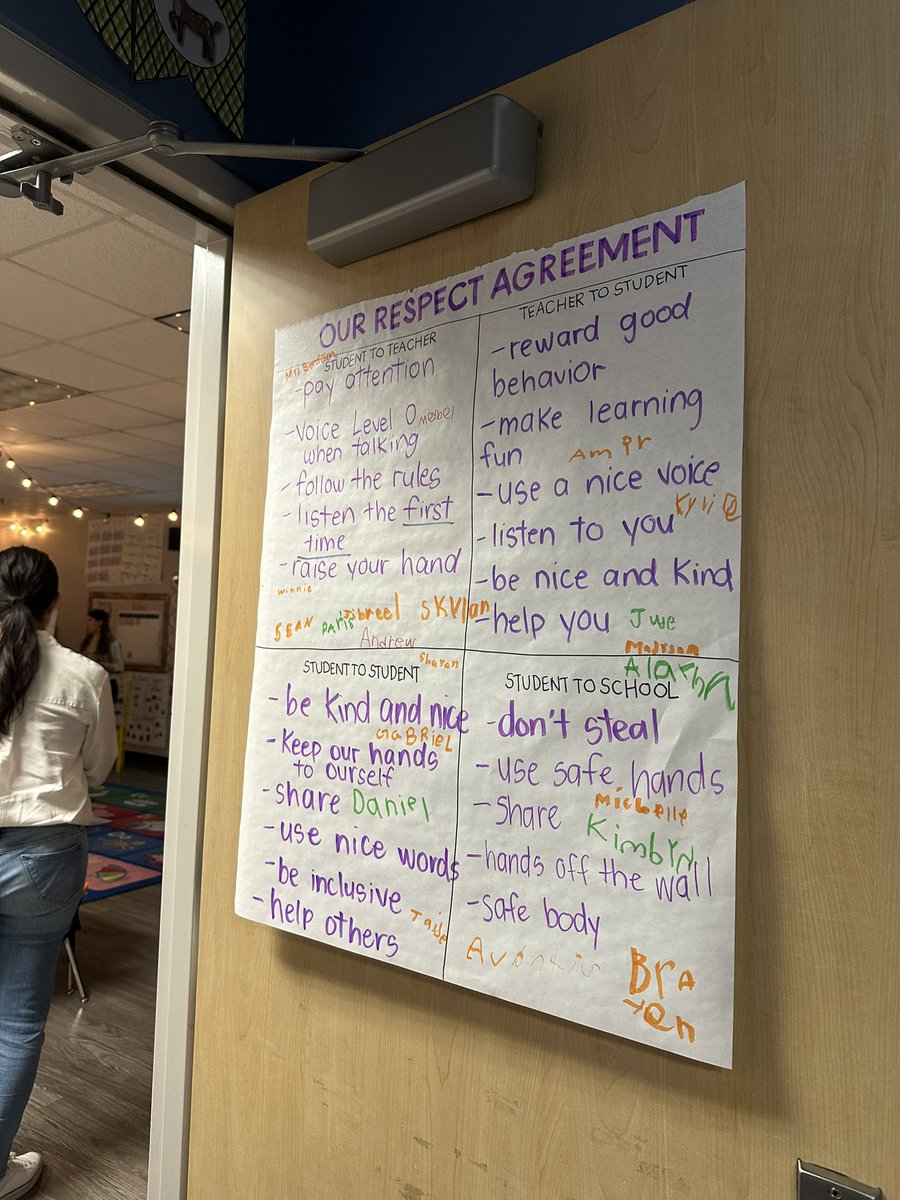 OUR RESPECT AGREEMENT
STUDENT TO TEACHER
-pay attention
-Voice Level 0
when talking
-follow the rules
-listen the first
time
-raise your hand
winnie
SEAN
PARIS
Jibreel
SKYlan
Andrew
TEACHER TO STUDENT
-reward good
behavior
-make learning
fun
Amir
-use a nice voice
-listen to you
-be nice and kind
-help you
Jude
Madison
STUDENT TO STUDENT
Sharan
-be kind and nice
GaBRieL
-Keep our hands
to ourself
-share
Daniel
-use nice words
-be inclusive
-help others
STUDENT TO SCHOOL
-don't steal
-use safe hands
-share
Michelle
-hands off the wall
-safe body
BrA
yen